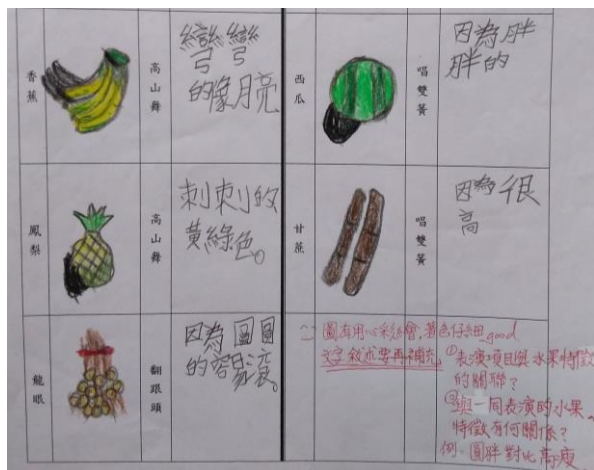 香蕉
高山舞
彎彎
的像月亮
鳳梨
高山舞
刺刺的
黃綠色。
龍眼
翻跟頭
因為圓圓
的容易滾。
西瓜
唱雙簧
因為胖
胖的
甘蔗
唱雙簧
因為很
高
圖有用心彩繪,著色仔細 good
文字敘述要再補充
①表演項目與水果特徵
的關聯?
②與一同表演的水果,
特徵有何關係?
例、圓胖對比高瘦